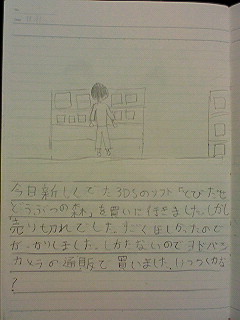 今日新しくでた3DSのソフト「とびだせ
どうぶつの森」を買いに行きました。しかし
売り切れでした。すごくほしかったので
がっかりしました。しかたないのでヨドバシ
カメラの通販で買いました。いつつくかな
？